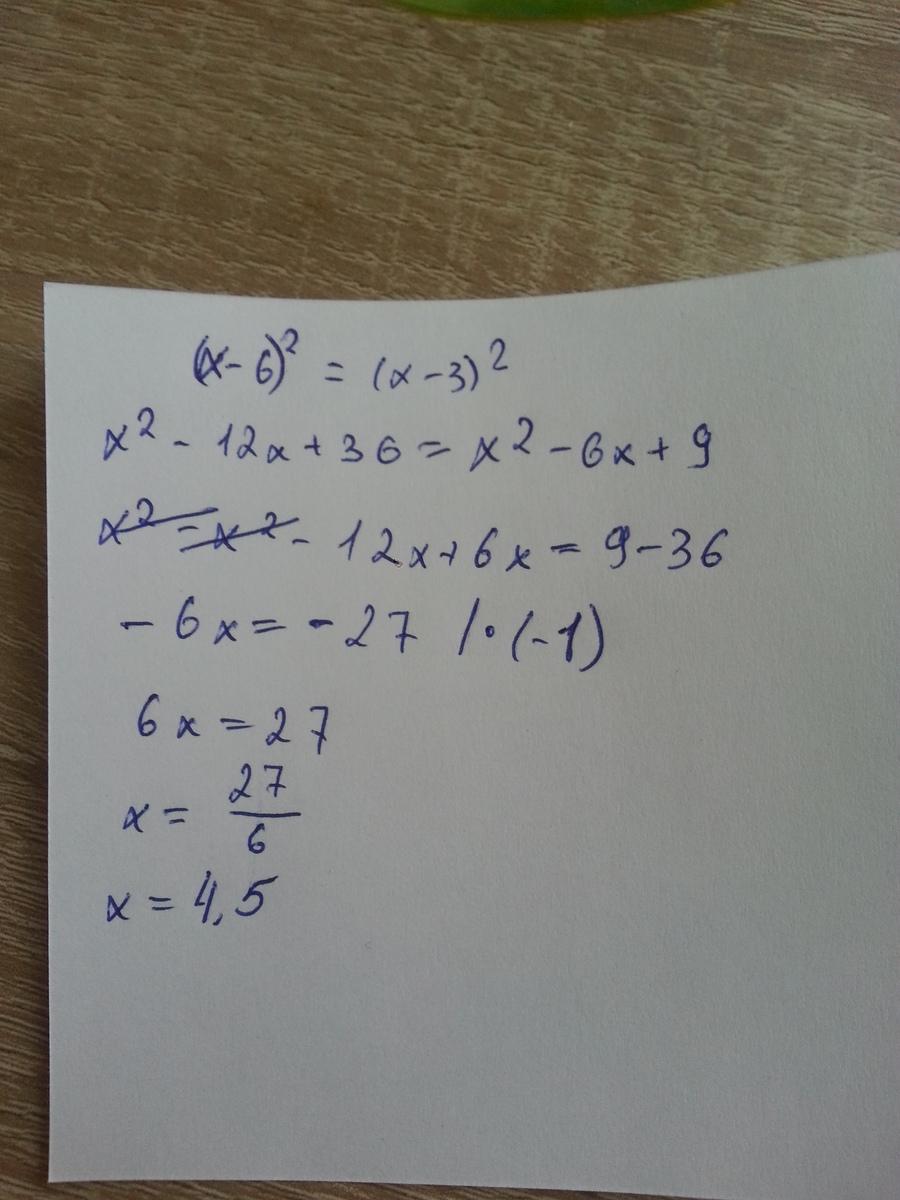 (x-6)² = (x-3)²
x² - 12x + 36 = x² - 6x + 9
x² - x² - 12x + 6x = 9 - 36
- 6x = - 27 /·(-1)
6x = 27
x = 27/6
x = 4,5